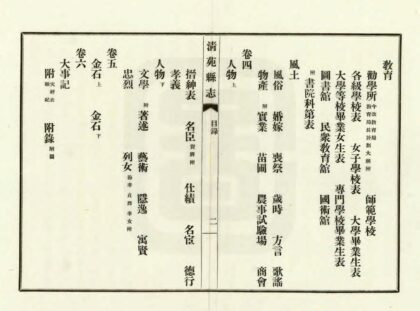 教育
勸學所 師範學校
各級學校表 女子學校表 大學畢業生表
大學等校畢業女生表 專門學校畢業生表
圖書館 民衆教育館 國術館
附 書院科第表
風土
風俗 婚嫁 喪祭 歲時 方言 歌謠
物產 附 實業 苗圃 農事試驗場 商會
卷四
人物 上
清苑縣志
目錄
二
搢紳表 名臣 仕績 名宦 德行
孝義
人物 下
文學 附 著述 藝術 隱逸 寓賢
忠烈 列女
卷五
金石 上 金石 下
卷六
大事記
附 附錄